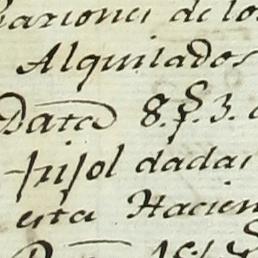 raciones de los
Alquilados
Data 8. S. 3. 
frisol dadas
esta Hacien